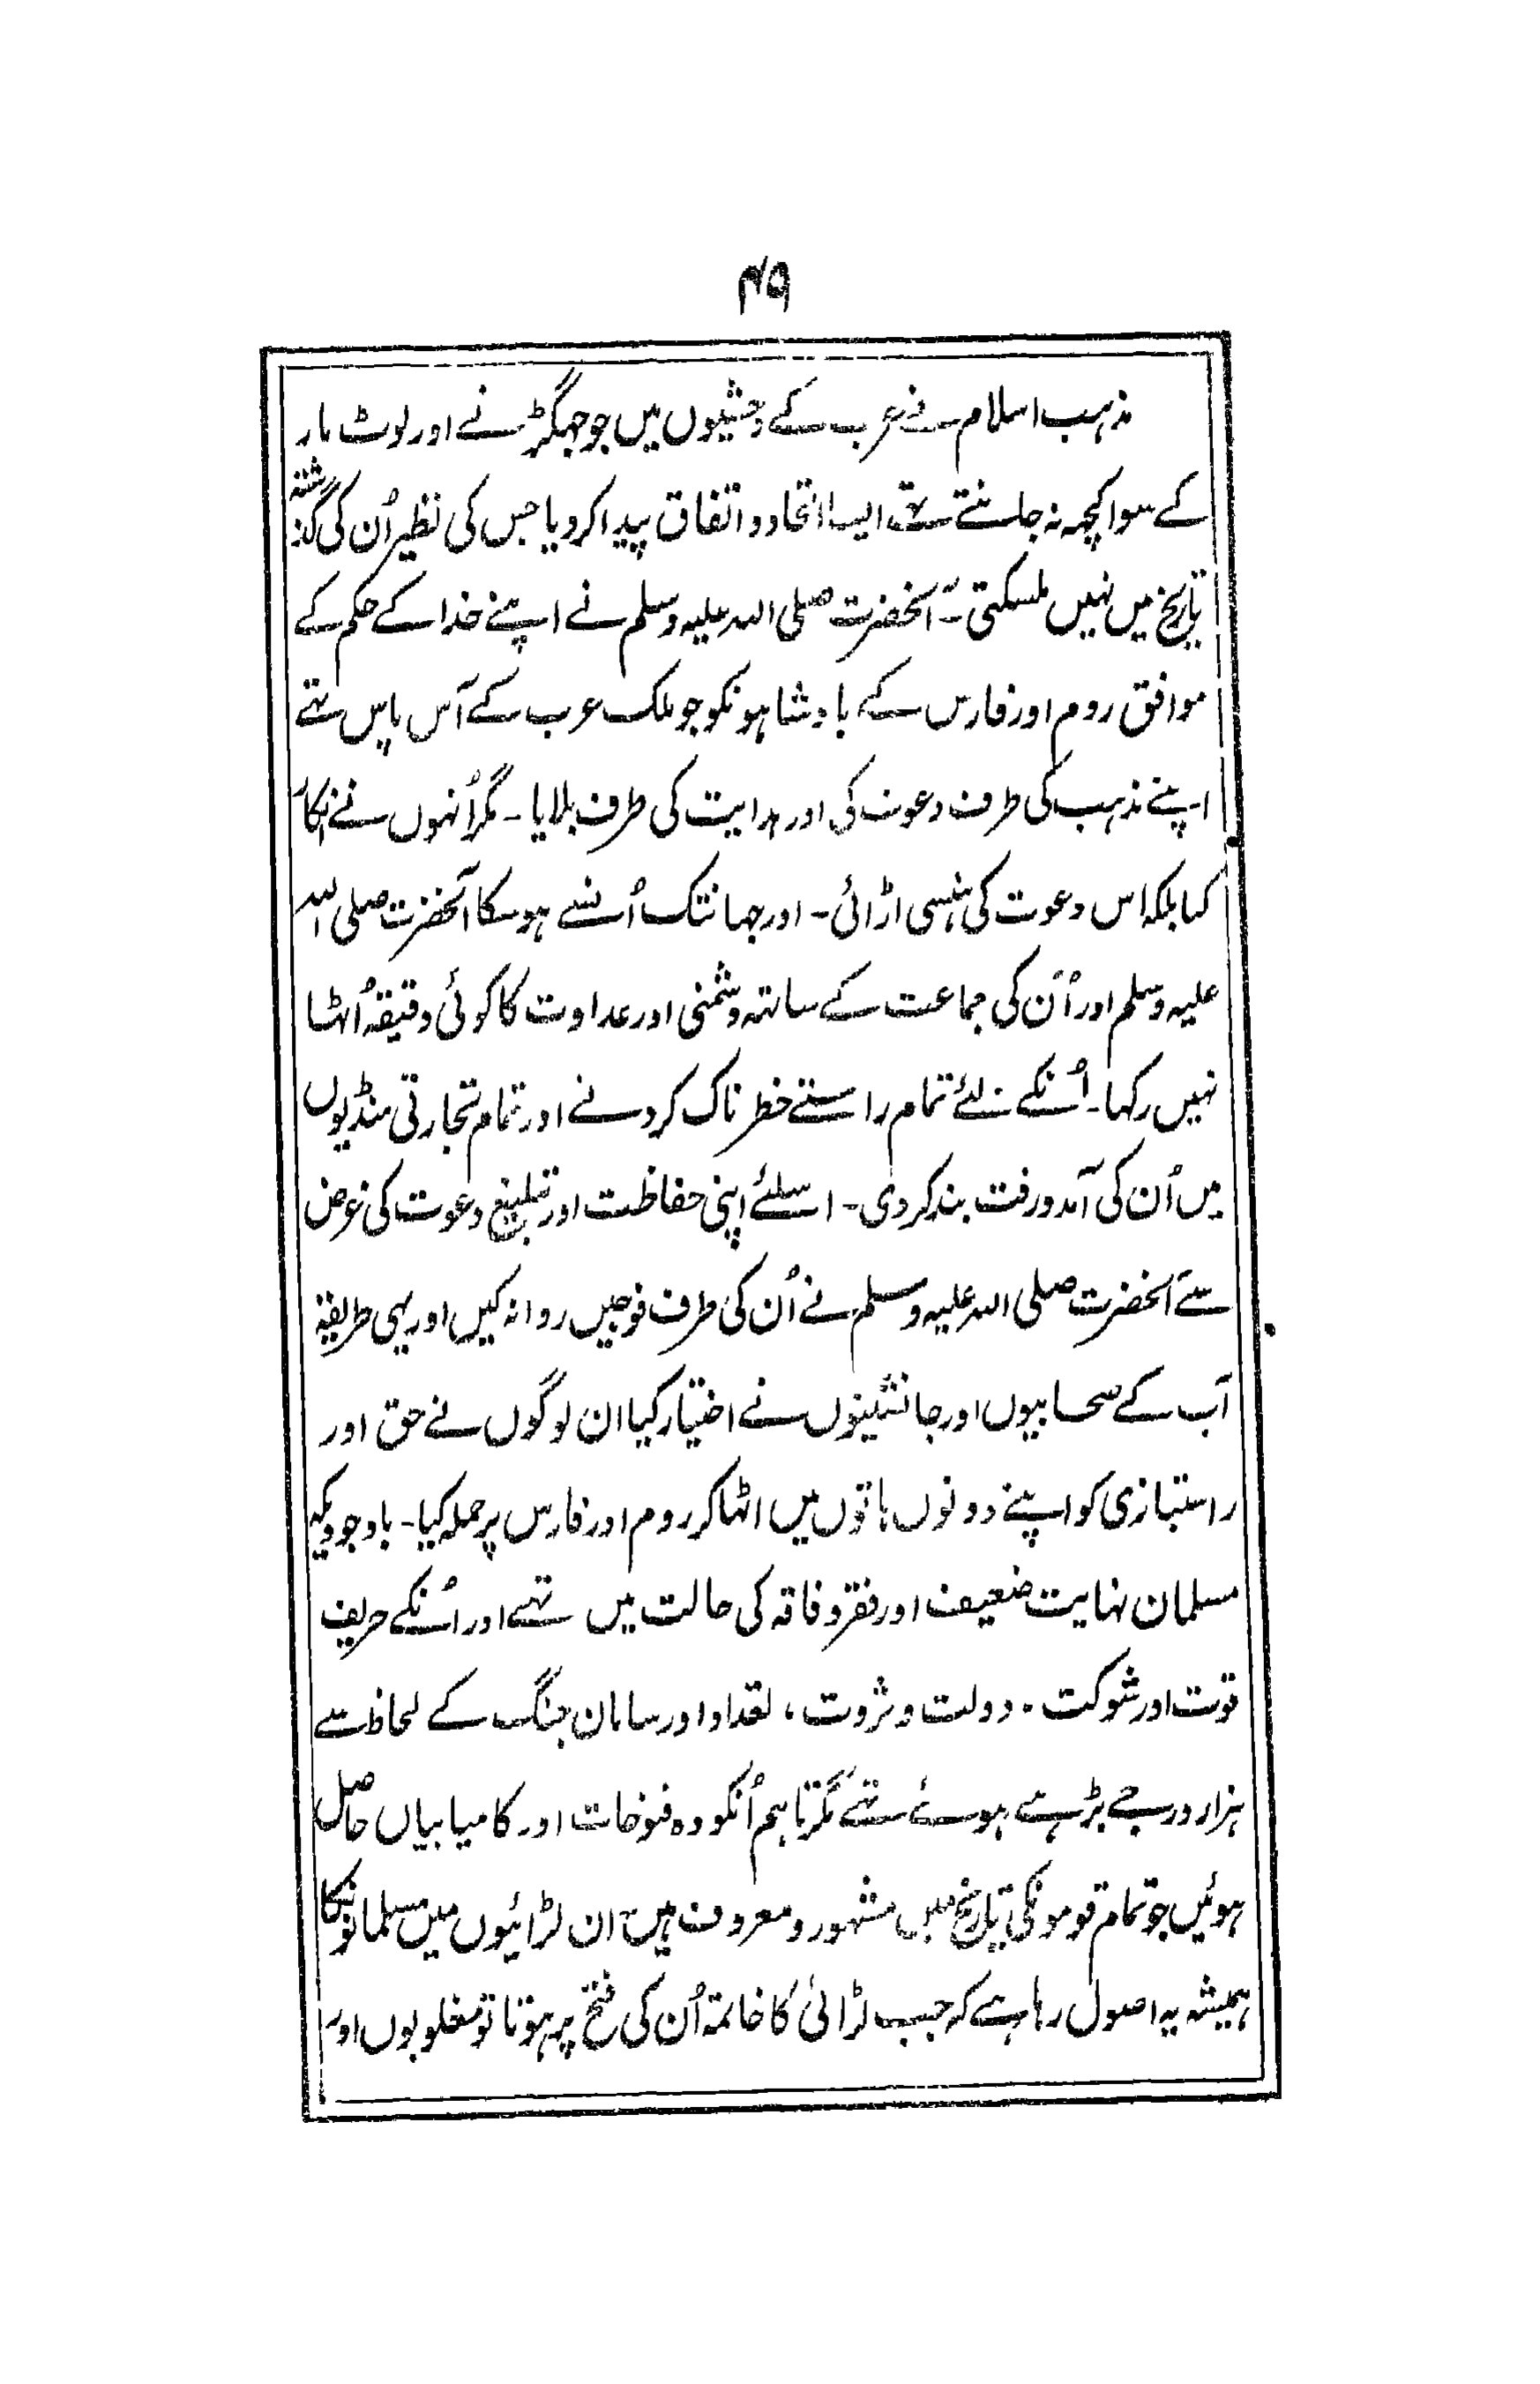 ۴۹
مذہب اسلام نے عرب کے وحشیوں میں جو جہگڑنے اور لوٹ مار
کے سوا کچہہ نہ جانتے تھے ایسا اتحاد و اتفاق پیدا کر دیا جس کی نظیر اُن کی گذشتہ
تاریخ میں نہیں ملسکتی۔ آنحضرت صلی اللہ علیہ وسلم نے اپنے خدا کے حکم کے
موافق روم اور فارس کے بادشاہونکو جو ملک عرب کے آس پاس تہے
اپنے مذہب کی طرف دعوت کی اور ہدایت کی طرف بلایا۔ مگر اُنہوں نے انکار
کیا بلکہ اس دعوت کی ہنسی اڑائی۔ اور جہانتک اُنسے ہو سکا آنحضرت صلی اللہ
علیہ وسلم اور اُن کی جماعت کے ساتہہ دشمنی اور عداوت کا کوئی دقیقہ اُٹہا
نہیں رکہا۔ اُنکے لئے تمام راستے خطرناک کر دئے اور تمام تجارتی منڈیوں
میں اُن کی آمد و رفت بند کر دی۔ اسلئے اپنی حفاظت اور تبلیغ دعوت کی غرض
سے آنحضرت صلی اللہ علیہ وسلم نے اُن کی طرف فوجیں روانہ کیں اور یہی طریقہ
آپ کے صحابیوں اور جانشینوں نے اختیار کیا ان لوگوں نے حق اور
راستبازی کو اپنے دونوں ہاتوں میں اٹہا کر روم اور فارس پر حملہ کیا۔ باوجودیکہ
مسلمان نہایت ضعیف اور فقر و فاقہ کی حالت میں تہے اور اُنکے حریف
قوت اور شوکت، دولت و ثروت، تعداد اور سامان جنگ کے لحاظ سے
ہزار درجے بڑہے ہوئے تہے مگر تاہم اُنکو وہ فتوحات اور کامیابیاں حاصل
ہوئیں جو تمام قومونکی تاریخ میں مشہور و معروف ہیں ان لڑائیوں میں مسلمانونکا
ہمیشہ یہ اصول رہا ہے کہ جب لڑائی کا خاتمہ اُن کی فتح پر ہوتا تو مغلوبوں اور